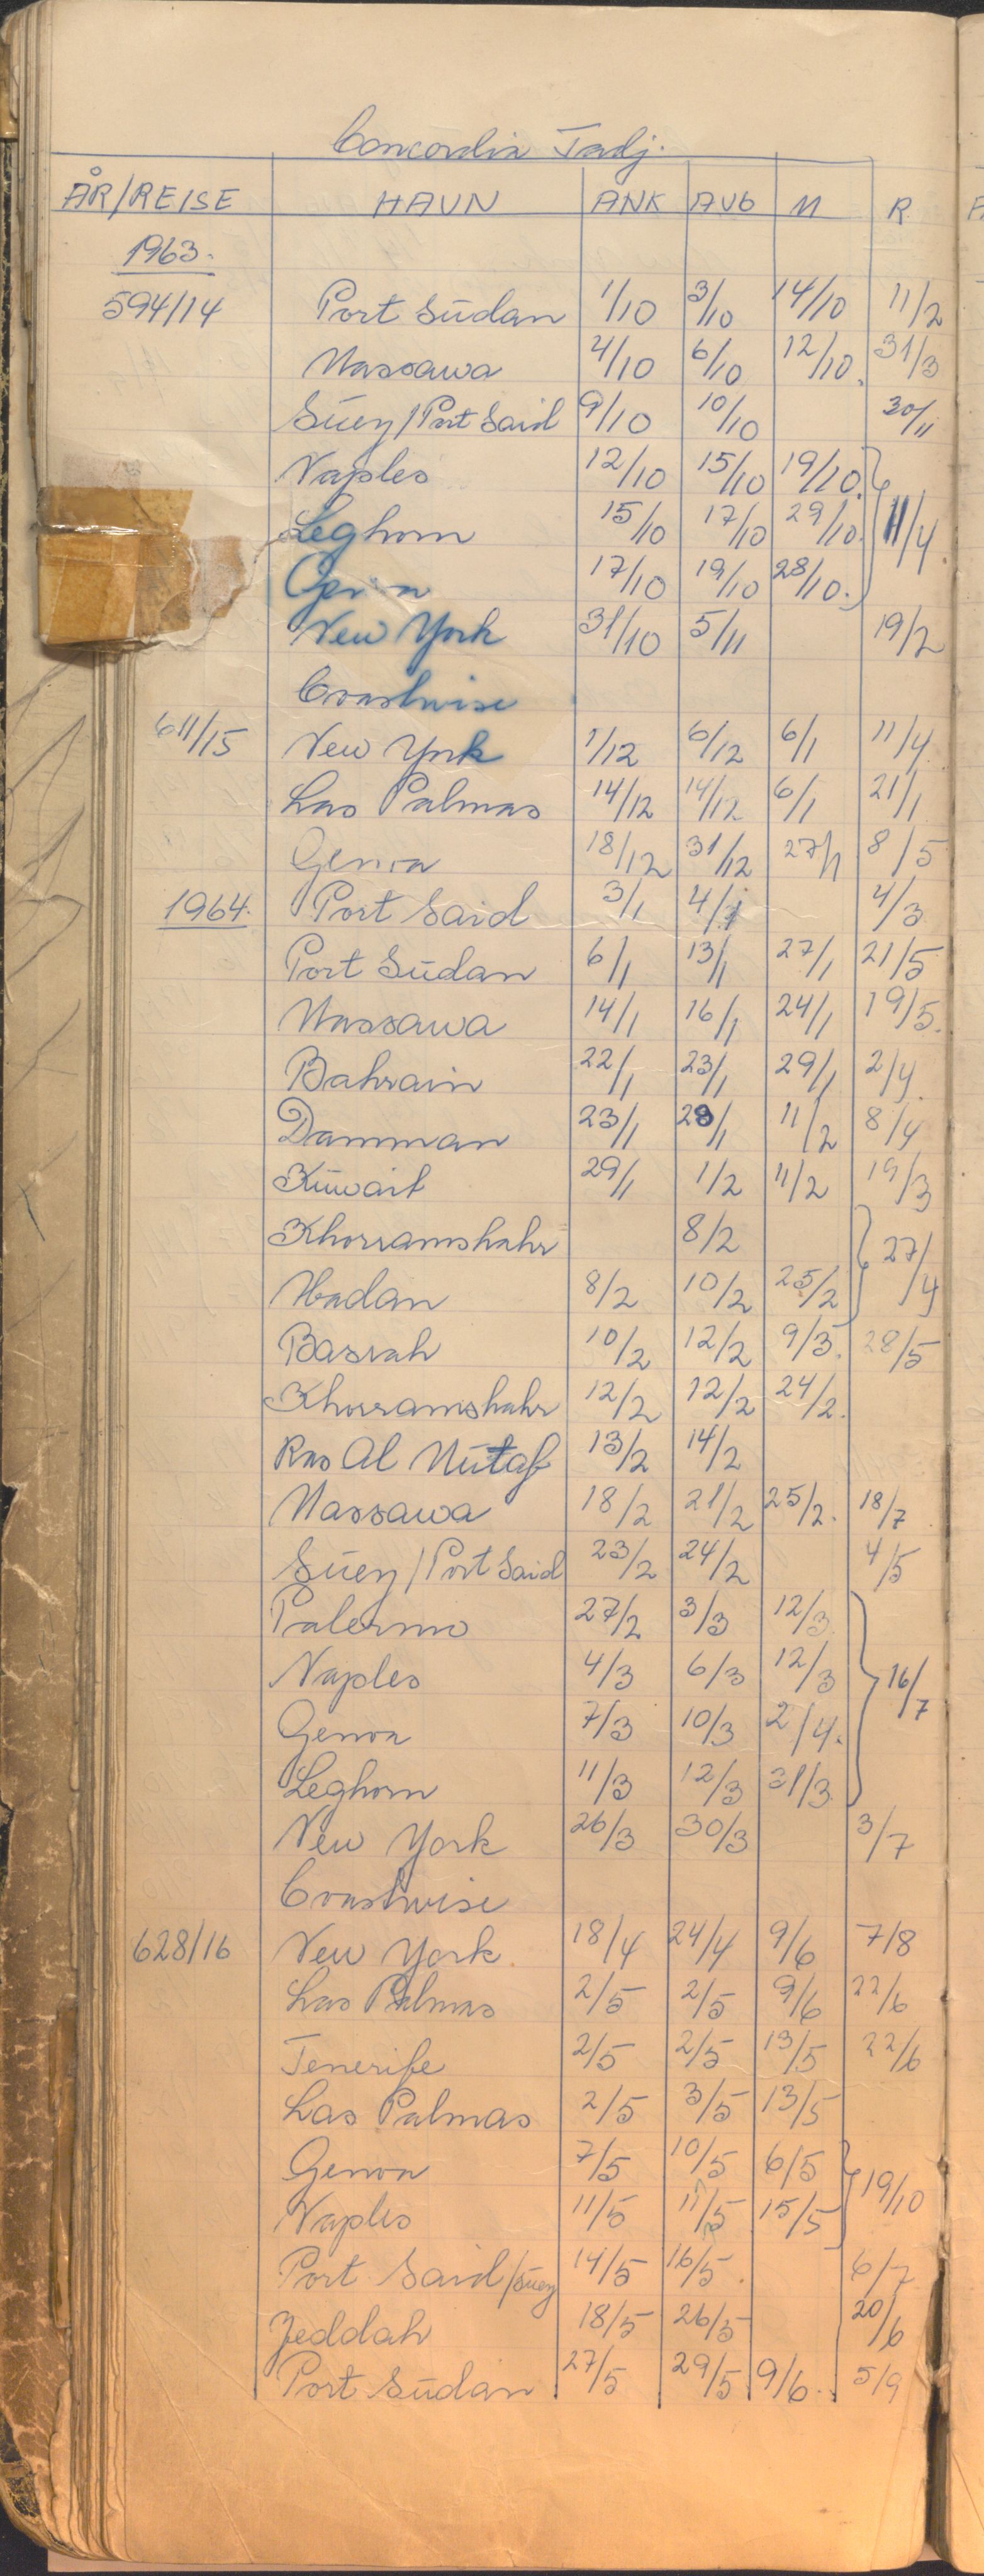 Concordia Tadj.
ÅR/REISE HAVN ANK AVG M R
1963.
594/14 Port Sūdan 1/10 3/10 14/10 11/2
Massawa 4/10 6/10 12/10. 31/3
Sūez/Port Said 9/10 10/10 30/11
Naples 12/10 15/10 19/10.
Leghorn 15/10 17/10 29/10. 11/4.
Genoa 17/10 19/10 28/10.
New York 31/10 5/11 19/2
Coastwise
611/15 New York 1/12 6/12 6/1 11/4.
Las Palmas 14/12 14/12 6/1 21/1
Genoa 18/12 31/12 27/1 8/5
1964. Port Said 3/1 4/1 4/3
Port Sūdan 6/1 13/1 27/1 21/5
Massawa 14/1 16/1 24/1 19/5.
Bahrain 22/1 23/1 29/1 2/4.
Damman 23/1 28/1 11/2 8/4
Kūwait 29/1 1/2 11/2 19/3
Khorramshahr 8/2 27/4
Abadan 8/2 10/2 25/2
Basrah 10/2 12/2 9/3. 28/5
Khorramshahr 12/2 12/2 24/2.
Ras Al Mūtaf 13/2 14/2
Massawa 18/2 21/2 25/2. 18/7
Sūez/Port Said 23/2 24/2 4/5
Palermo 27/2 3/3 12/3.
Naples 4/3 6/3 12/3 16/7
Genoa 7/3 10/3 2/4.
Leghorn 11/3 12/3 31/3.
New York 26/3 30/3 3/7
Coastwise
628/16 New York. 18/4 24/4 9/6 7/8
Las Palmas 2/5 2/5 9/6 22/6
Tenerife 2/5 2/5 13/5 22/6
Las Palmas 2/5 3/5 13/5
Genoa 7/5 10/5 6/5 19/10
Naples 11/5 11/5 15/5
Port Said/Sūez 14/5 16/5. 6/7
Jeddah 18/5 26/5 20/6
Port Sūdan 27/5 29/5 9/6. 5/9